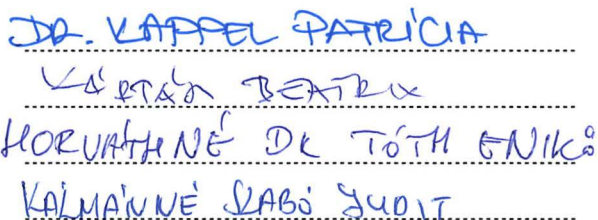 DR. KAPPEL PATRÍCIA
KÁRTÁN BEATRIX
HORVÁTHNÉ DR TÓTH ENIKŐ
KÁLMÁNNÉ SZABÓ JUDIT